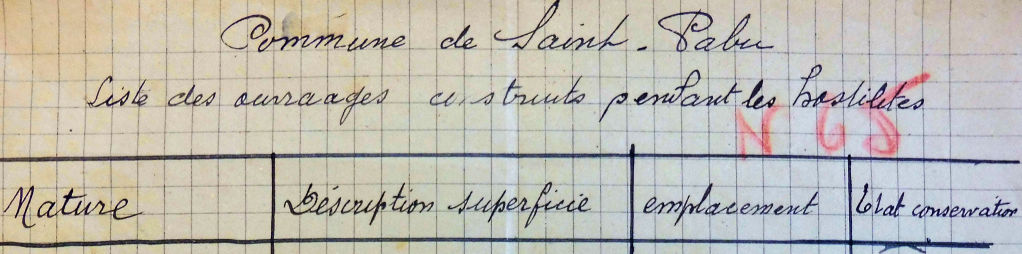 Commune de Saint-Pabu
Liste des ouvraages construits pendant les hostilites
N 65
Nature Déscription superficie emplacement Etat conservation